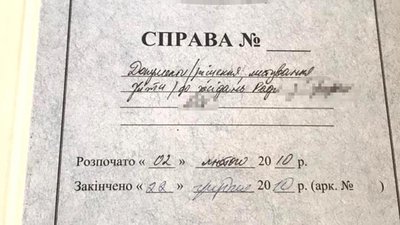 СПРАВА № ____
Документи/рішення, листування
/до засідань Ради
Розпочато « 02 » лютого 2010 р.
Закінчено « 22 » грудня 2010 р. (арк. № )